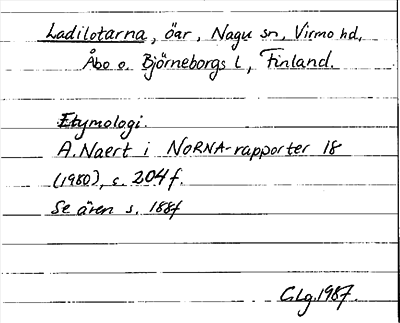 Ladilotarna, öar, Nagu sn, Virmo hd,
Åbo o. Björneborgs l, Finland.
Etymologi.
A. Naert i NORNA-rapporter 18
(1980), s. 204f.
Se även s. 188f
CLg. 1987.